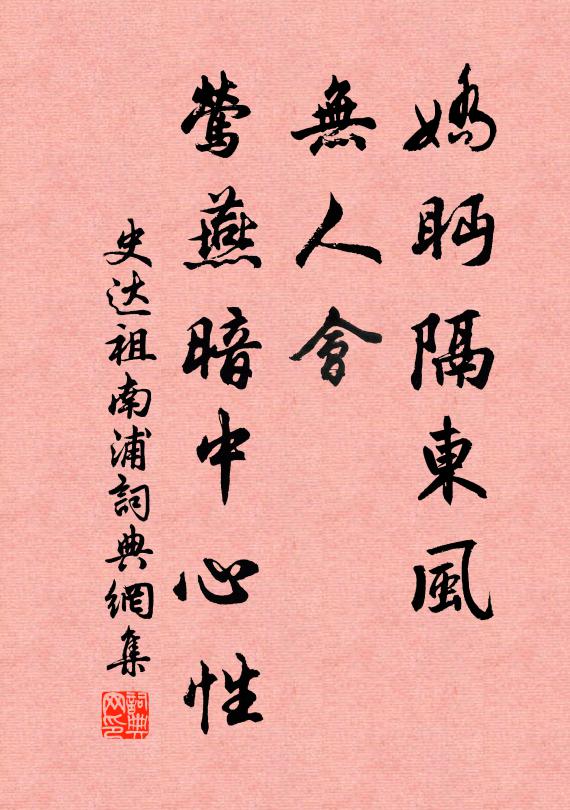 嬌眄隔東風
無人會
鶯燕暗中心性
史达祖南浦詞典網集
詞典网印